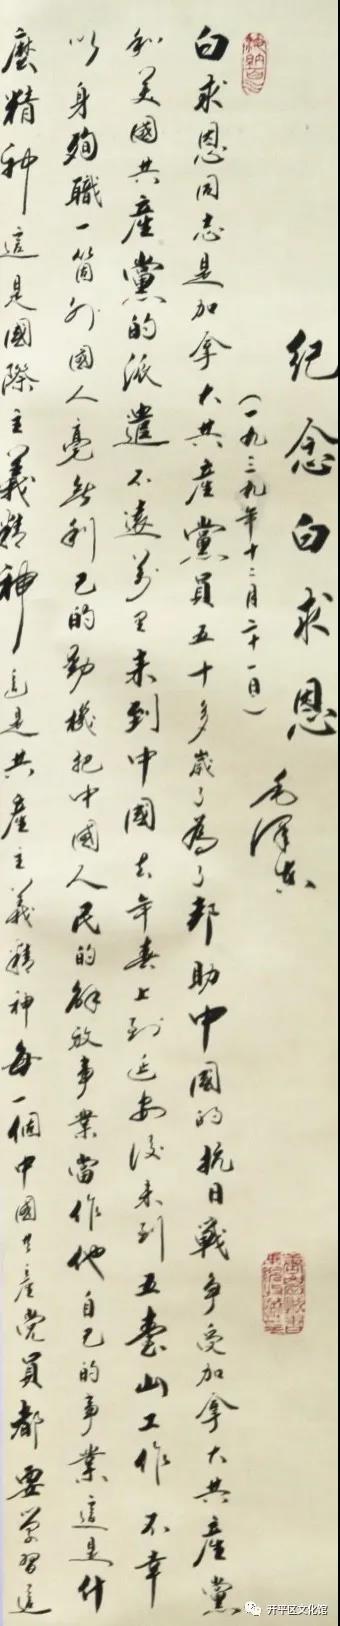 紀念白求恩 毛澤東
(一九三九年十二月二十一日)
白求恩同志是加拿大共產黨員五十多歲了為了幫助中國的抗日戰爭受加拿大共產黨
和美國共產黨的派遣不遠萬里來到中國去年春上到延安後來到五臺山工作不幸
以身殉職一箇外國人毫無利己的動機把中國人民的解放事業當作他自己的事業這是什
麼精神這是國際主義精神這是共產主義精神每一個中國共產党員都要學習這
开平区文化馆